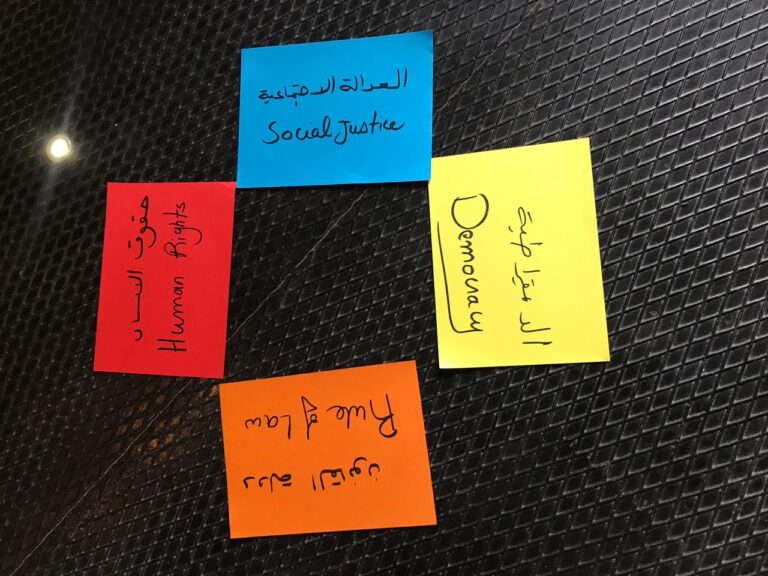 العدالة الاجتماعية
Social Justice
الدمقراطية
Democracy
حقوق الانسان
Human Rights
Rule of Law
دولة القانون